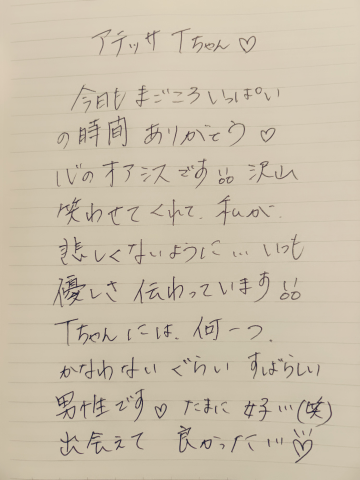 アテッサ Tちゃん♡
今日も まごころ いっぱい
の時間 ありがとう ♡
心のオアシスです!!! 沢山
笑わせてくれて、私が、
悲しくないように… いつも
優しさ 伝わっています!!!
Tちゃんには、何一つ、
かなわない ぐらい すばらしい
男性です♡ たまに 好…(笑)
出会えて 良かった…♡